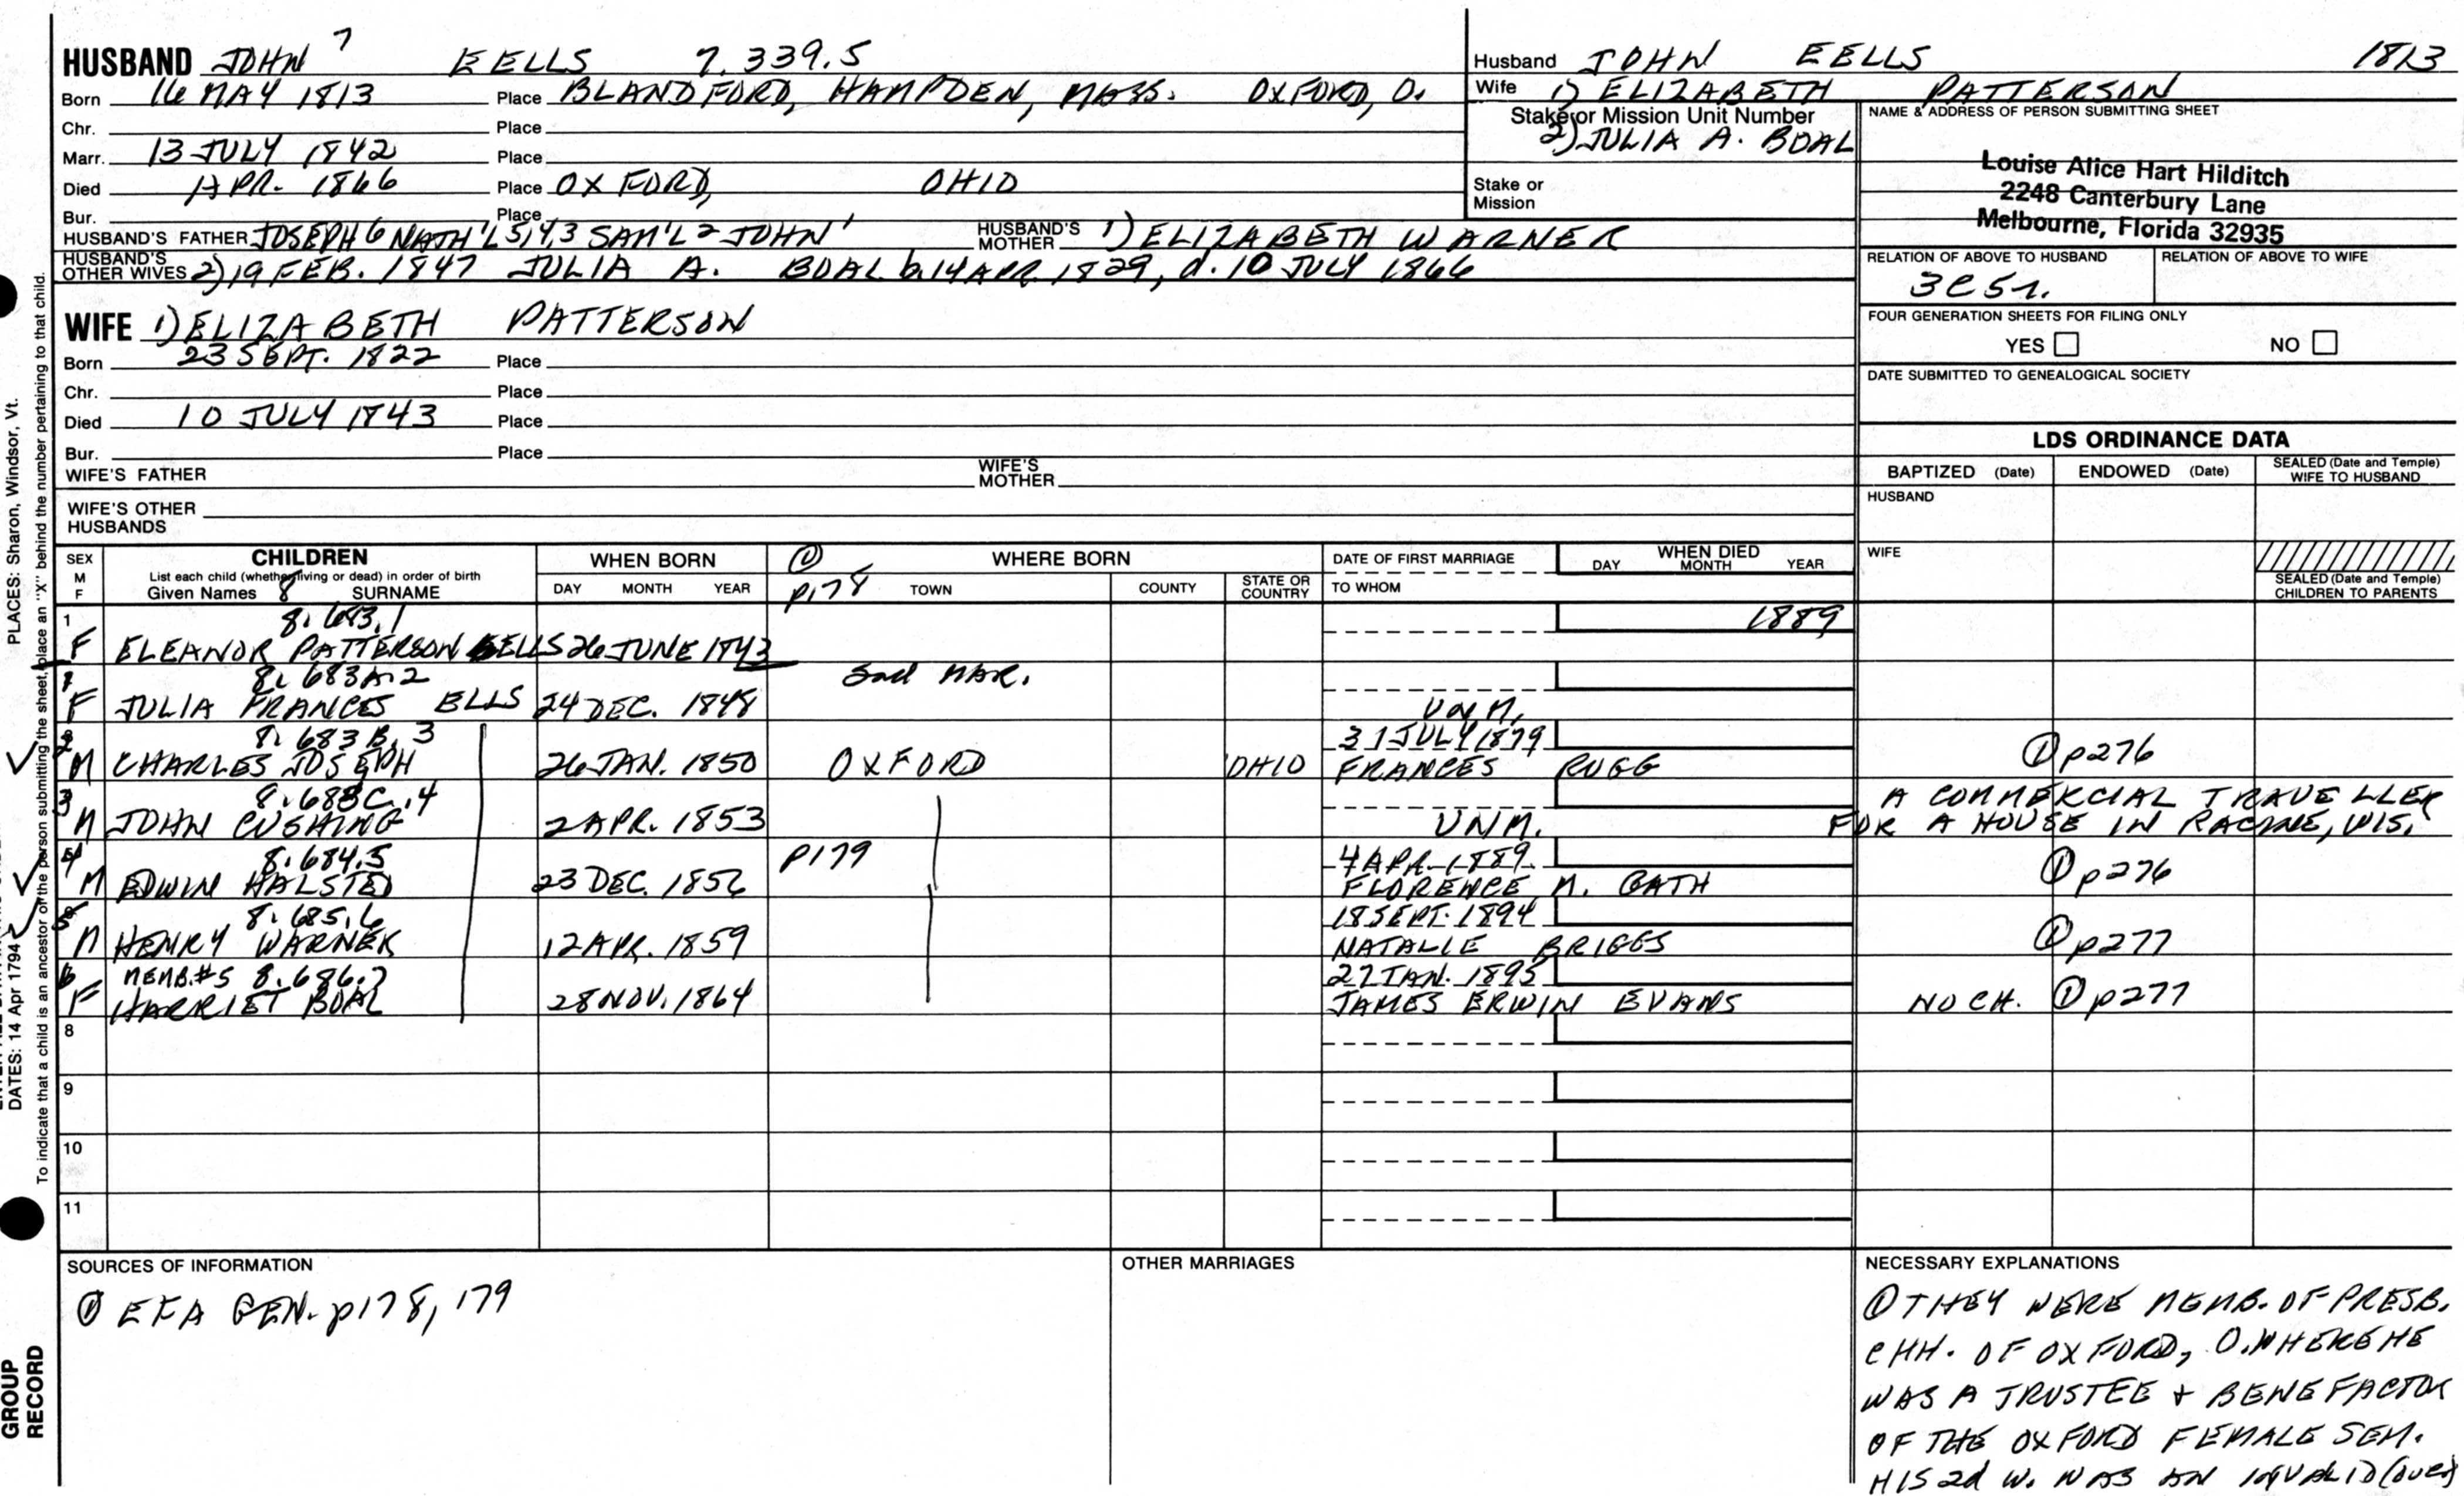 HUSBAND JOHN 7 EELLS 7.339.5
Born 16 MAY 1813 Place BLANDFORD, HAMPDEN, MASS. OXFORD, O.
Chr. Place
Marr. 13 JULY 1842 Place
Died APR. 1866 Place OXFORD, OHIO
Bur. Place
HUSBAND'S FATHER JOSEPH 6 NATH'L 5,4,3 SAM'L 2 JOHN 1 HUSBAND'S MOTHER 1) ELIZABETH WARNER
HUSBAND'S OTHER WIVES 2) 19 FEB. 1847 JULIA A. BOAL b. 14 APR. 1829, d. 10 JULY 1866
WIFE 1) ELIZABETH PATTERSON
Born 23 SEPT. 1822 Place
Chr. Place
Died 10 JULY 1843 Place
Bur. Place
WIFE'S FATHER WIFE'S MOTHER
WIFE'S OTHER HUSBANDS
Husband JOHN EELLS 1813
Wife 1) ELIZABETH PATTERSON
Stake or Mission Unit Number
2) JULIA A. BOAL
Stake or Mission
NAME & ADDRESS OF PERSON SUBMITTING SHEET
Louise Alice Hart Hilditch
2248 Canterbury Lane
Melbourne, Florida 32935
RELATION OF ABOVE TO HUSBAND RELATION OF ABOVE TO WIFE
3C5r.
FOUR GENERATION SHEETS FOR FILING ONLY
YES NO
DATE SUBMITTED TO GENEALOGICAL SOCIETY
LDS ORDINANCE DATA
BAPTIZED (Date) ENDOWED (Date) SEALED (Date and Temple) WIFE TO HUSBAND
HUSBAND
WIFE
SEALED (Date and Temple) CHILDREN TO PARENTS
SEX M F CHILDREN WHEN BORN ① WHERE BORN DATE OF FIRST MARRIAGE WHEN DIED
List each child (whether living or dead) in order of birth
Given Names 8 SURNAME DAY MONTH YEAR p178 TOWN COUNTY STATE OR COUNTRY TO WHOM DAY MONTH YEAR
1 8.683.1 1889
F ELEANOR PATTERSON EELLS 26 JUNE 1843
1 8.683A.2 2nd MAR.
F JULIA FRANCES ELLS 24 DEC. 1848 UNM.
2 8.683B.3 31 JULY 1879
M CHARLES JOSEPH 26 JAN. 1850 OXFORD OHIO FRANCES RUGG ① p276
3 8.683C.4 A COMMERCIAL TRAVELLER
M JOHN CUSHING 2 APR. 1853 UNM. FOR A HOUSE IN RACINE, WIS.
4 8.684.5 P179 4 APR. 1889
M EDWIN HALSTED 23 DEC. 1856 FLORENCE M. GATH ① p276
5 8.685.6 18 SEPT. 1894
M HENRY WARNER 12 APR. 1859 NATALIE BRIGGS ① p277
6 MEMB.#5 8.686.7 27 JAN. 1895
F HARRIET BOAL 28 NOV. 1864 JAMES ERWIN EVANS NO CH. ① p277
8
9
10
11
SOURCES OF INFORMATION
① EFA GEN. p178, 179
OTHER MARRIAGES
NECESSARY EXPLANATIONS
① THEY WERE MEMB. OF PRESB.
CHH. OF OXFORD, O. WHERE HE
WAS A TRUSTEE + BENEFACTOR
OF THE OXFORD FEMALE SEM.
HIS 2d W. WAS AN INVALID (over)
PLACES: Sharon, Windsor, Vt.
DATES: 14 Apr 1794
To indicate that a child is an ancestor of the person submitting the sheet, place an "X" behind the number pertaining to that child.
GROUP
RECORD